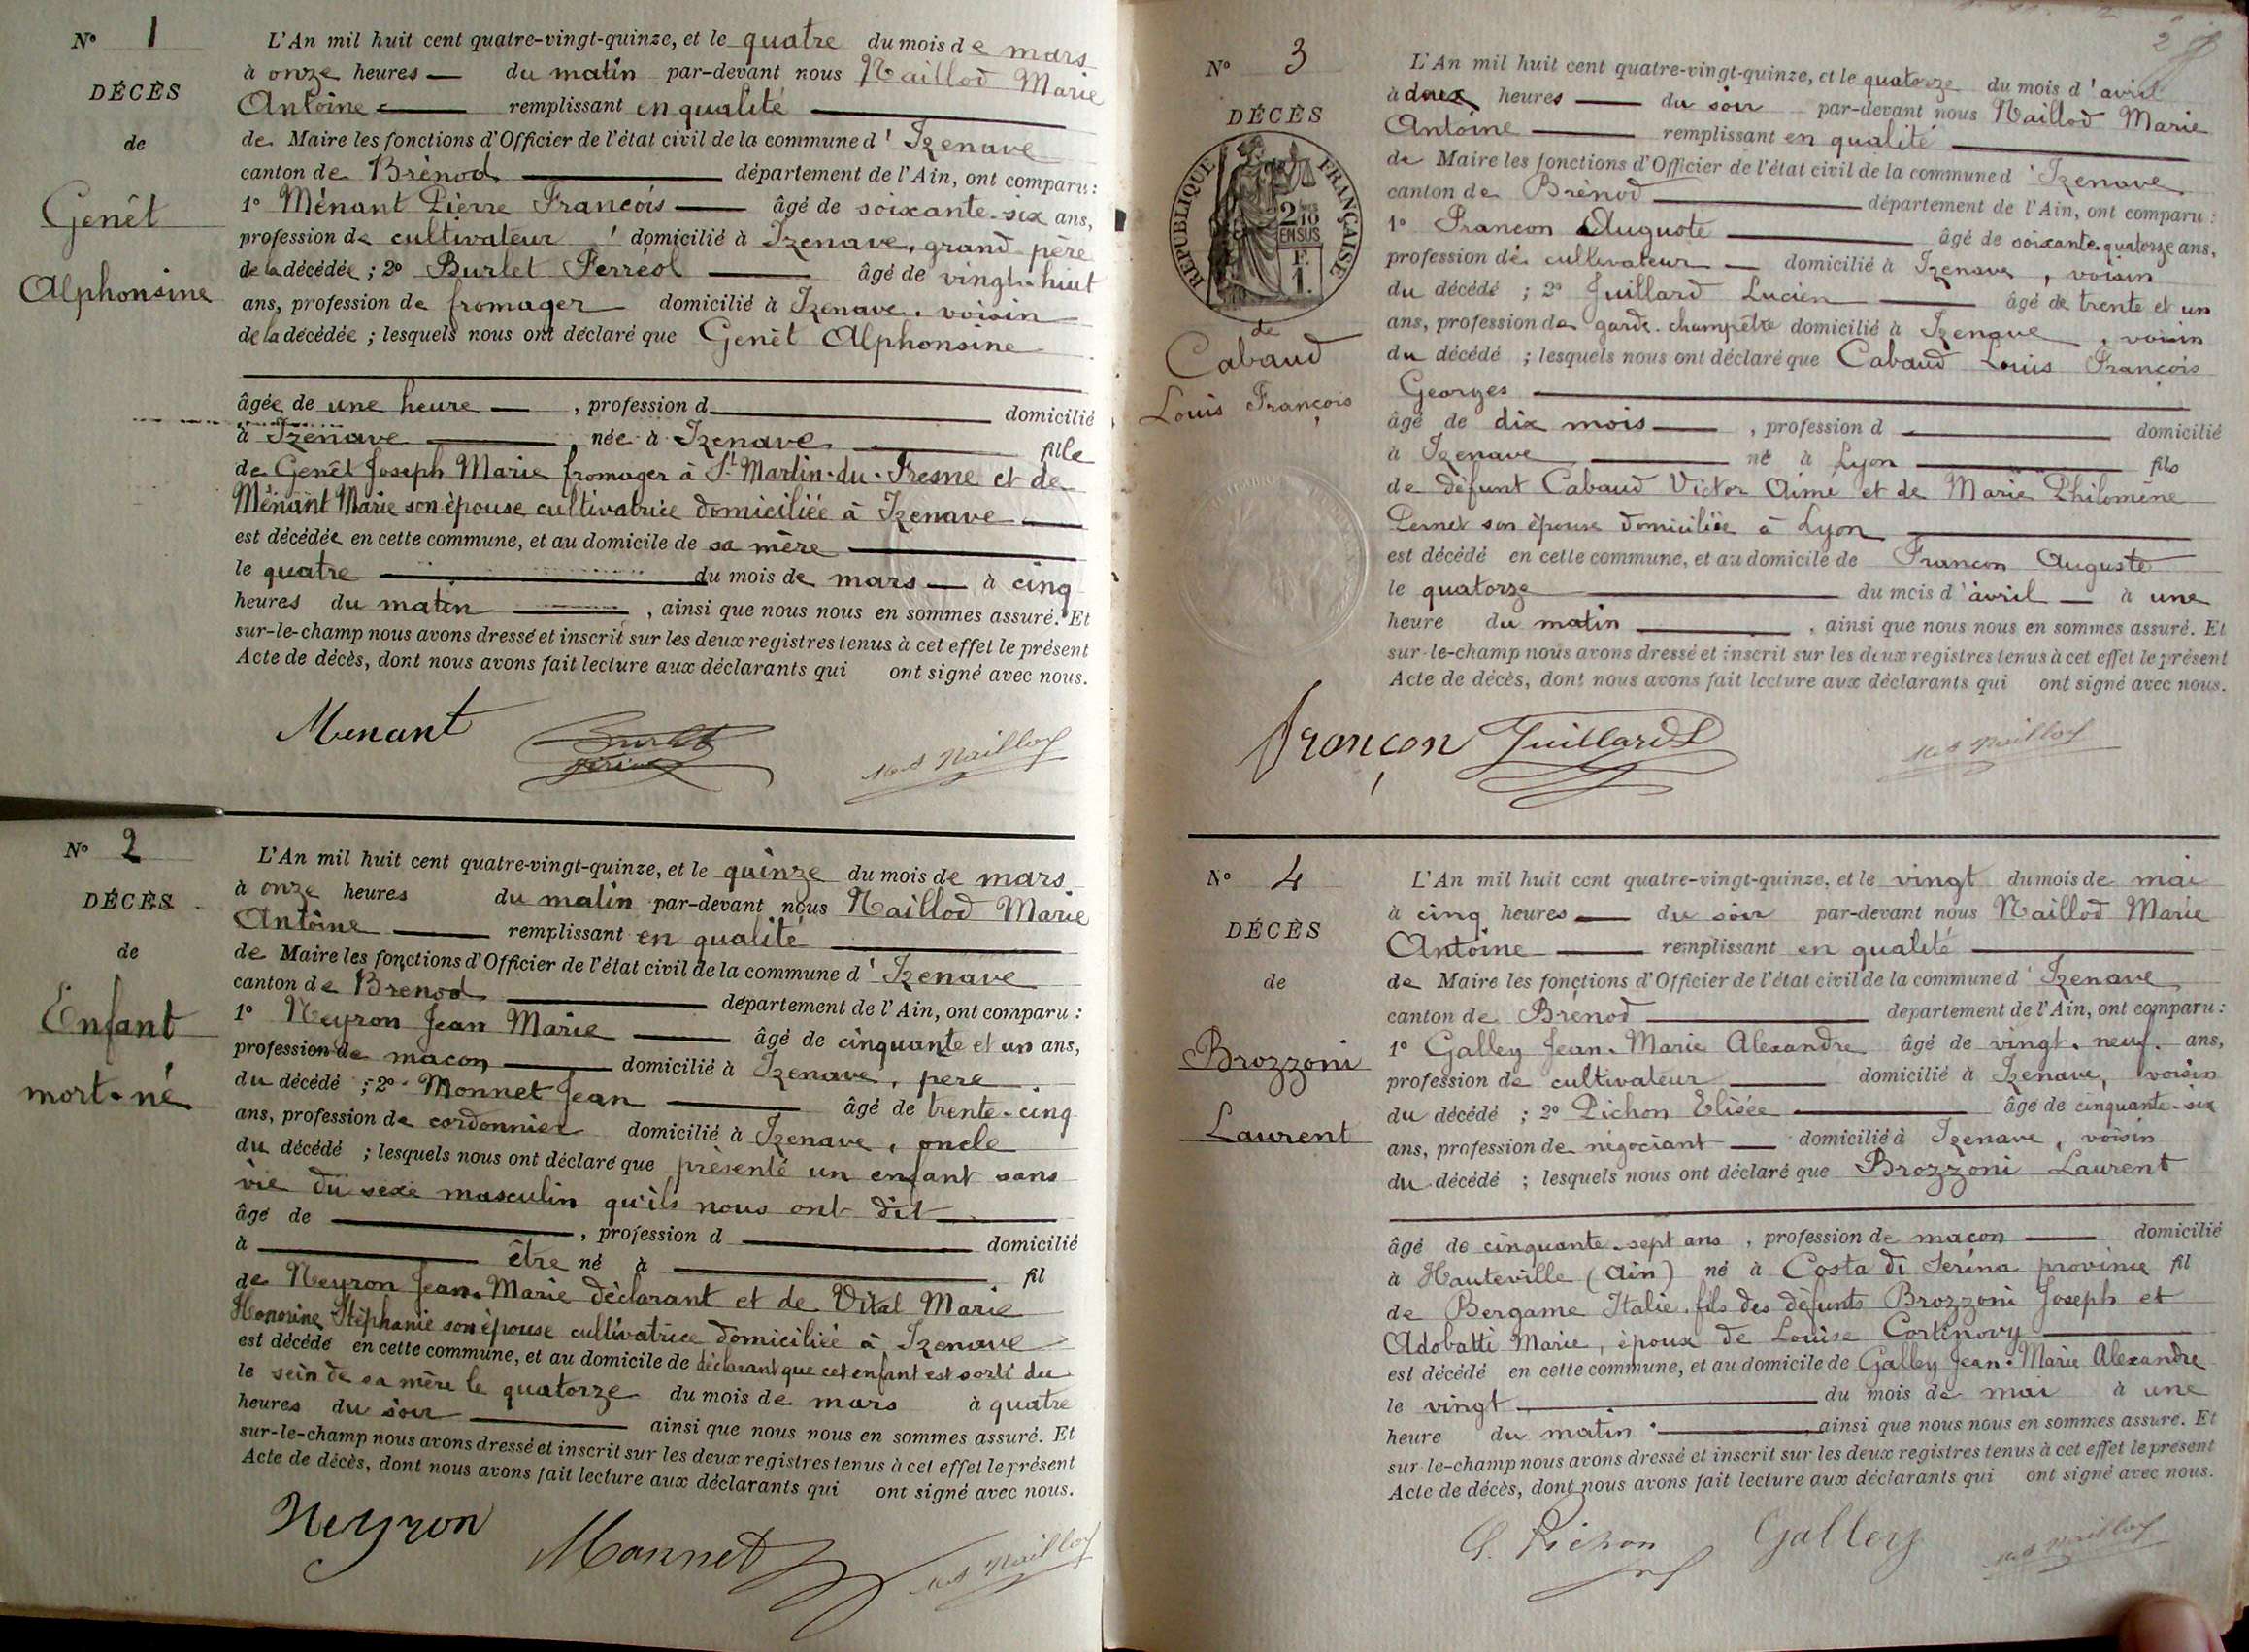 N° 1
DÉCÈS
de
Genêt
Alphonsine
L'An mil huit cent quatre-vingt-quinze, et le quatre du mois de mars
à onze heures — du matin par-devant nous Naillod Marie
Antoine — remplissant en qualité —
de Maire les fonctions d'Officier de l'état civil de la commune d'Izenave
canton de Brénod — département de l'Ain, ont comparu :
1° Ménant Pierre François — âgé de soixante-six ans,
profession de cultivateur domicilié à Izenave, grand père
de la décédée ; 2° Burlet Ferréol — âgé de vingt-huit
ans, profession de fromager domicilié à Izenave, voisin
de la décédée ; lesquels nous ont déclaré que Genêt Alphonsine
âgée de une heure — , profession d — domicilié
à Izenave — née à Izenave — fille
de Genêt Joseph Marie fromager à St Martin-du-Fresne et de
Ménant Marie son épouse cultivatrice domiciliée à Izenave —
est décédée en cette commune, et au domicile de sa mère —
le quatre — du mois de mars — à cinq
heures du matin — , ainsi que nous nous en sommes assuré. Et
sur-le-champ nous avons dressé et inscrit sur les deux registres tenus à cet effet le présent
Acte de décès, dont nous avons fait lecture aux déclarants qui ont signé avec nous.
Menant Burlet Naillod
N° 2
DÉCÈS
de
Enfant
mort-né
L'An mil huit cent quatre-vingt-quinze, et le quinze du mois de mars
à onze heures du matin par-devant nous Naillod Marie
Antoine — remplissant en qualité —
de Maire les fonctions d'Officier de l'état civil de la commune d'Izenave
canton de Brenod — département de l'Ain, ont comparu :
1° Neyron Jean Marie — âgé de cinquante et un ans,
profession de maçon — domicilié à Izenave, père
du décédé ; 2° Monnet Jean — âgé de trente-cinq
ans, profession de cordonnier domicilié à Izenave, oncle
du décédé ; lesquels nous ont déclaré que présenté un enfant sans
vie du sexe masculin qu'ils nous ont dit —
âgé de — , profession d — domicilié
à — être né à — fil
de Neyron Jean-Marie déclarant et de Vital Marie
Honorine Stéphanie son épouse cultivatrice domiciliée à Izenave
est décédé en cette commune, et au domicile de déclarant que cet enfant est sorti du
le sein de sa mère le quatorze du mois de mars à quatre
heures du soir — ainsi que nous nous en sommes assuré. Et
sur-le-champ nous avons dressé et inscrit sur les deux registres tenus à cet effet le présent
Acte de décès, dont nous avons fait lecture aux déclarants qui ont signé avec nous.
Neyron Monnet Naillod
2
N° 3
DÉCÈS
RÉPUBLIQUE FRANÇAISE
2/10 EN SUS
F. 1.
de
Cabaud
Louis François
L'An mil huit cent quatre-vingt-quinze, et le quatorze du mois d'avril
à deux heures — du soir par-devant nous Naillod Marie
Antoine — remplissant en qualité —
de Maire les fonctions d'Officier de l'état civil de la commune d'Izenave
canton de Brénod — département de l'Ain, ont comparu :
1° Françon Auguste — âgé de soixante-quatorze ans,
profession de cultivateur — domicilié à Izenave, voisin
du décédé ; 2° Juillard Lucien — âgé de trente et un
ans, profession de garde-champêtre domicilié à Izenave, voisin
du décédé ; lesquels nous ont déclaré que Cabaud Louis François
Georges —
âgé de dix mois — , profession d — domicilié
à Izenave — né à Lyon — fils
de défunt Cabaud Victor Aimé et de Marie Philomène
Pernet son épouse domiciliée à Lyon —
est décédé en cette commune, et au domicile de Françon Auguste
le quatorze — du mois d'avril — à une
heure du matin — , ainsi que nous nous en sommes assuré. Et
sur-le-champ nous avons dressé et inscrit sur les deux registres tenus à cet effet le présent
Acte de décès, dont nous avons fait lecture aux déclarants qui ont signé avec nous.
françon Juillard L Naillod
N° 4
DÉCÈS
de
Brozzoni
Laurent
L'An mil huit cent quatre-vingt-quinze, et le vingt du mois de mai
à cinq heures — du soir par-devant nous Naillod Marie
Antoine — remplissant en qualité —
de Maire les fonctions d'Officier de l'état civil de la commune d'Izenave
canton de Brénod — département de l'Ain, ont comparu :
1° Galley Jean-Marie Alexandre âgé de vingt-neuf ans,
profession de cultivateur — domicilié à Izenave, voisin
du décédé ; 2° Pichon Elisée — âgé de cinquante-six
ans, profession de négociant — domicilié à Izenave, voisin
du décédé ; lesquels nous ont déclaré que Brozzoni Laurent
âgé de cinquante-sept ans, profession de maçon — domicilié
à Hauteville (Ain) né à Costa di Serina province fil
de Bergame Italie, fils des défunts Brozzoni Joseph et
Adobatti Marie, époux de Louise Cortinovy —
est décédé en cette commune, et au domicile de Galley Jean-Marie Alexandre
le vingt — du mois de mai à une
heure du matin — , ainsi que nous nous en sommes assuré. Et
sur-le-champ nous avons dressé et inscrit sur les deux registres tenus à cet effet le présent
Acte de décès, dont nous avons fait lecture aux déclarants qui ont signé avec nous.
Pichon Galley Naillod